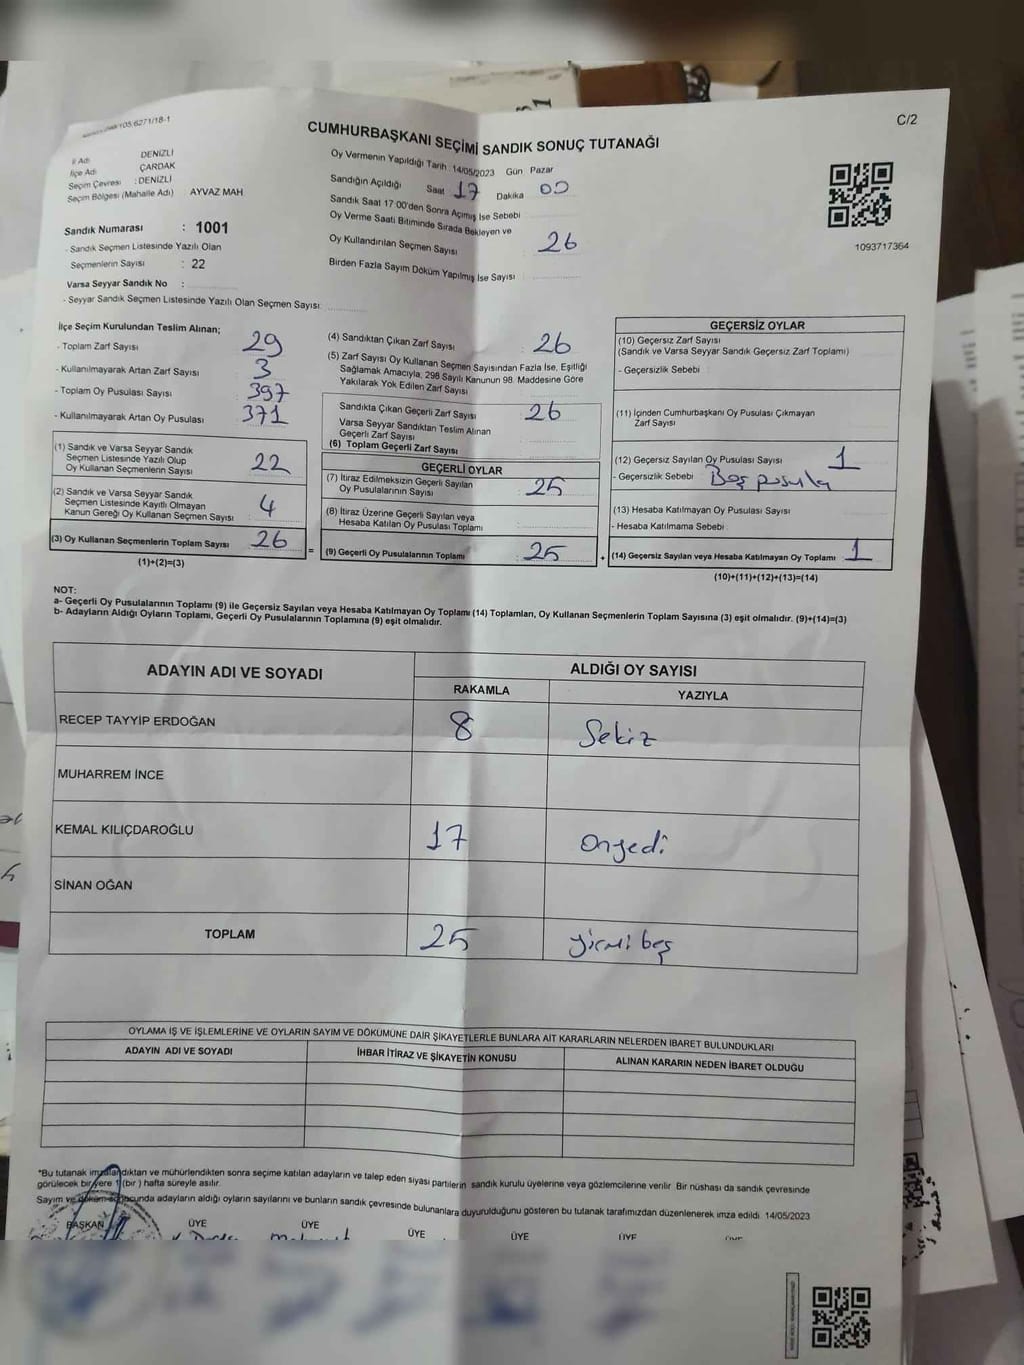 C/2
CUMHURBAŞKANI SEÇİMİ SANDIK SONUÇ TUTANAĞI
İl Adı DENİZLİ
İlçe Adı ÇARDAK
Seçim Çevresi : DENİZLİ
Seçim Bölgesi (Mahalle Adı) : AYVAZ MAH
Sandık Numarası : 1001
- Sandık Seçmen Listesinde Yazılı Olan
Seçmenlerin Sayısı : 22
Varsa Seyyar Sandık No :
- Seyyar Sandık Seçmen Listesinde Yazılı Olan Seçmen Sayısı:
Oy Vermenin Yapıldığı Tarih : 14/05/2023 Gün Pazar
Sandığın Açıldığı Saat 17 Dakika 00
Sandık Saat 17:00'den Sonra Açılmış İse Sebebi
Oy Verme Saati Bitiminde Sırada Bekleyen ve
Oy Kullandırılan Seçmen Sayısı : 26
Birden Fazla Sayım Döküm Yapılmış İse Sayısı :
1093717364
İlçe Seçim Kurulundan Teslim Alınan;
- Toplam Zarf Sayısı : 29
- Kullanılmayarak Artan Zarf Sayısı : 3
- Toplam Oy Pusulası Sayısı : 397
- Kullanılmayarak Artan Oy Pusulası : 371
(1) Sandık ve Varsa Seyyar Sandık
Seçmen Listesinde Yazılı Olup
Oy Kullanan Seçmenlerin Sayısı : 22
(2) Sandık ve Varsa Seyyar Sandık
Seçmen Listesinde Kayıtlı Olmayan
Kanun Gereği Oy Kullanan Seçmen Sayısı : 4
(3) Oy Kullanan Seçmenlerin Toplam Sayısı : 26
(1)+(2)=(3)
(4) Sandıktan Çıkan Zarf Sayısı : 26
(5) Zarf Sayısı Oy Kullanan Seçmen Sayısından Fazla İse, Eşitliği
Sağlamak Amacıyla, 298 Sayılı Kanunun 98. Maddesine Göre
Yakılarak Yok Edilen Zarf Sayısı :
Sandıkta Çıkan Geçerli Zarf Sayısı : 26
Varsa Seyyar Sandıktan Teslim Alınan
Geçerli Zarf Sayısı
(6) Toplam Geçerli Zarf Sayısı
GEÇERLİ OYLAR
(7) İtiraz Edilmeksizin Geçerli Sayılan
Oy Pusulalarının Sayısı : 25
(8) İtiraz Üzerine Geçerli Sayılan veya
Hesaba Katılan Oy Pusulası Toplamı
= (9) Geçerli Oy Pusulalarının Toplamı : 25
GEÇERSİZ OYLAR
(10) Geçersiz Zarf Sayısı
(Sandık ve Varsa Seyyar Sandık Geçersiz Zarf Toplamı)
- Geçersizlik Sebebi :
(11) İçinden Cumhurbaşkanı Oy Pusulası Çıkmayan
Zarf Sayısı
(12) Geçersiz Sayılan Oy Pusulası Sayısı : 1
- Geçersizlik Sebebi : Boş pusula
(13) Hesaba Katılmayan Oy Pusulası Sayısı :
- Hesaba Katılmama Sebebi :
+ (14) Geçersiz Sayılan veya Hesaba Katılmayan Oy Toplamı : 1
(10)+(11)+(12)+(13)=(14)
NOT:
a- Geçerli Oy Pusulalarının Toplamı (9) ile Geçersiz Sayılan veya Hesaba Katılmayan Oy Toplamı (14) Toplamları, Oy Kullanan Seçmenlerin Toplam Sayısına (3) eşit olmalıdır. (9)+(14)=(3)
b- Adayların Aldığı Oyların Toplamı, Geçerli Oy Pusulalarının Toplamına (9) eşit olmalıdır.
ADAYIN ADI VE SOYADI
ALDIĞI OY SAYISI
RAKAMLA YAZIYLA
RECEP TAYYİP ERDOĞAN 8 Sekiz
MUHARREM İNCE
KEMAL KILIÇDAROĞLU 17 Onyedi
SİNAN OĞAN
TOPLAM 25 yirmi beş
OYLAMA İŞ VE İŞLEMLERİNE VE OYLARIN SAYIM VE DÖKÜMÜNE DAİR ŞİKAYETLERLE BUNLARA AİT KARARLARIN NELERDEN İBARET BULUNDUKLARI
ADAYIN ADI VE SOYADI İHBAR İTİRAZ VE ŞİKAYETİN KONUSU ALINAN KARARIN NEDEN İBARET OLDUĞU
*Bu tutanak imzalandıktan ve mühürlendikten sonra seçime katılan adayların ve talep eden siyasi partilerin sandık kurulu üyelerine veya gözlemcilerine verilir. Bir nüshası da sandık çevresinde
görülecek bir yere 1 (bir) hafta süreyle asılır.
Sayım ve döküm sonucunda adayların aldığı oyların sayılarını ve bunların sandık çevresinde bulunanlara duyurulduğunu gösteren bu tutanak tarafımızdan düzenlenerek imza edildi. 14/05/2023
BAŞKAN ÜYE ÜYE ÜYE ÜYE ÜYE ÜYE